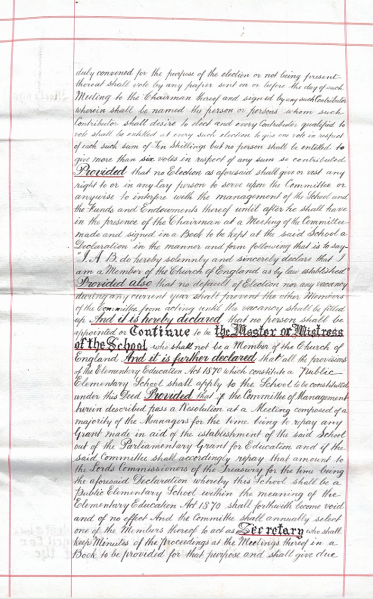 duly convened for the purpose of the election or not being present
thereat shall vote by any paper sent in or before the day of such
Meeting to the Chairman thereof and signed by any such Contributor
wherein shall be named the person or persons whom such
Contributor shall desire to elect and every Contributor qualified to
vote shall be entitled at every such election to give one vote in respect
of each such sum of Ten Shillings but no person shall be entitled to
give more than six votes in respect of any sum so contributed
Provided that no Election as aforesaid shall give or vest any
right to or in any lay person to serve upon the Committee or
anywise to interfere with the management of the School and
the Funds and Endowments thereof until after he shall have
in the presence of the Chairman at a Meeting of the Committee
made and signed in a Book to be kept at the said School a
Declaration in the manner and form following that is to say
"I A B do hereby solemnly and sincerely declare that I
am a Member of the Church of England as by law established"
Provided also that no default of Election nor any vacancy
during any current year shall prevent the other Members
of the Committee from acting until the vacancy shall be filled
up And it is hereby declared that no person shall be
appointed or Continue to be the Master or Mistress
of the School who shall not be a Member of the Church of
England And it is further declared that all the provisions
of the Elementary Education Act 1870 which constitute a Public
Elementary School shall apply to the School to be constituted
under this Deed Provided that if the Committee of Management
herein described pass a Resolution at a Meeting composed of a
majority of the Managers for the time being to repay any
Grant made in aid of the establishment of the said School
out of the Parliamentary Grant for Education and if the
said Committee shall accordingly repay that amount to
the Lords Commissioners of the Treasury for the time being
the aforesaid Declaration whereby this School shall be a
public Elementary School within the meaning of the
Elementary Education Act 1870 shall forthwith become void
and of no effect And the Committee shall annually select
one of the Members thereof to act as Secretary who shall
keep Minutes of the proceedings at the Meetings thereof in a
Book to be provided for that purpose and shall give due